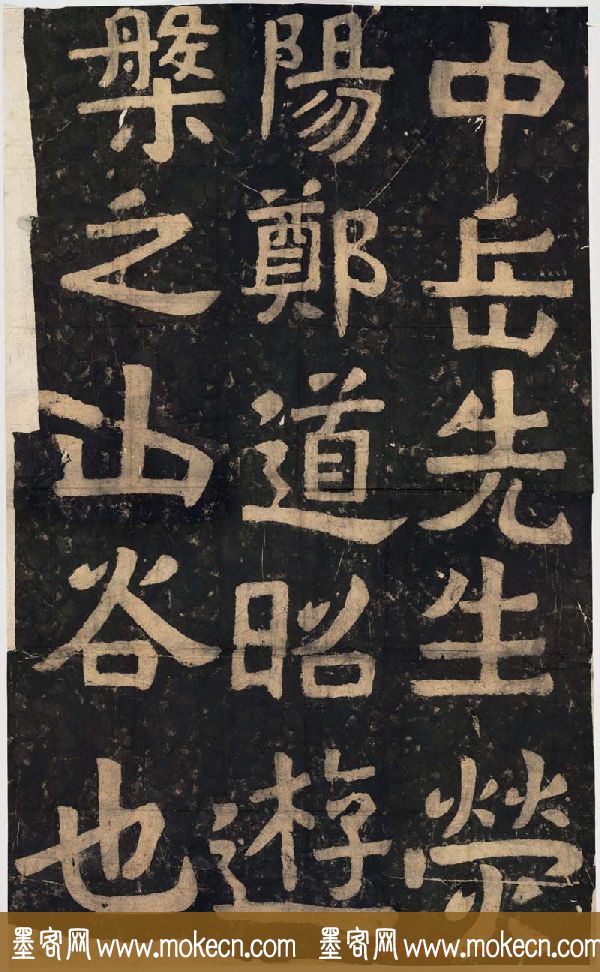 中岳先生熒
陽鄭道昭遊
槃之山谷也
墨客网 www.mokecn.com 墨客网 www.mokecn.com